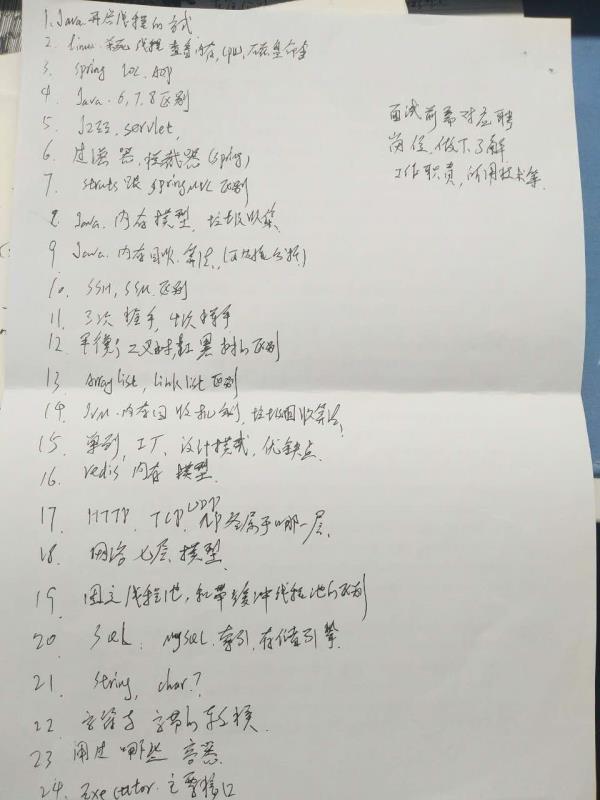 1. Java开启线程的方式
2. linux 线程 查看内存, cpu, 磁盘命令
3. spring IOC, AOP
4. Java. 6, 7, 8 区别
5. J2EE, servlet,
6. 过滤器, 拦截器 (spring)
7. struts 跟 springMVC 区别
8. Java. 内存模型, 垃圾收集
9 Java. 内存回收. 算法, (可达性分析)
10. SSH, SSM 区别
11. 三次握手, 四次挥手
12. 平衡二叉树, 红黑树的区别
13 Arraylist, linklist 区别
14. JVM. 内存回收机制, 垃圾回收算法,
15. 单列, 工厂, 设计模式, 优缺点.
16. redis 内存 模型.
17. HTTP. TCP. UDP 属于哪一层.
18. 网络七层模型.
19. 固定线程池, 和带缓冲线程池的区别
20 Sql. mysql. 索引, 存储引擎.
21. string, char?
22. 字符与字节的转换.
23 阐述哪些
24. Executor. 主要接口
面试前需对应聘
岗位. 做下了解
工作职责, 所用技术等.